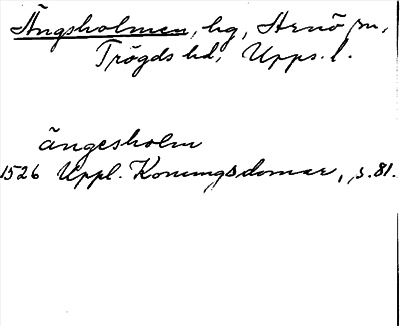 Ängsholmen, hg, Arnö sn,
Trögds hd, Upps. l.
ängesholm
1526 Uppl. Konungsdomar, s. 81.